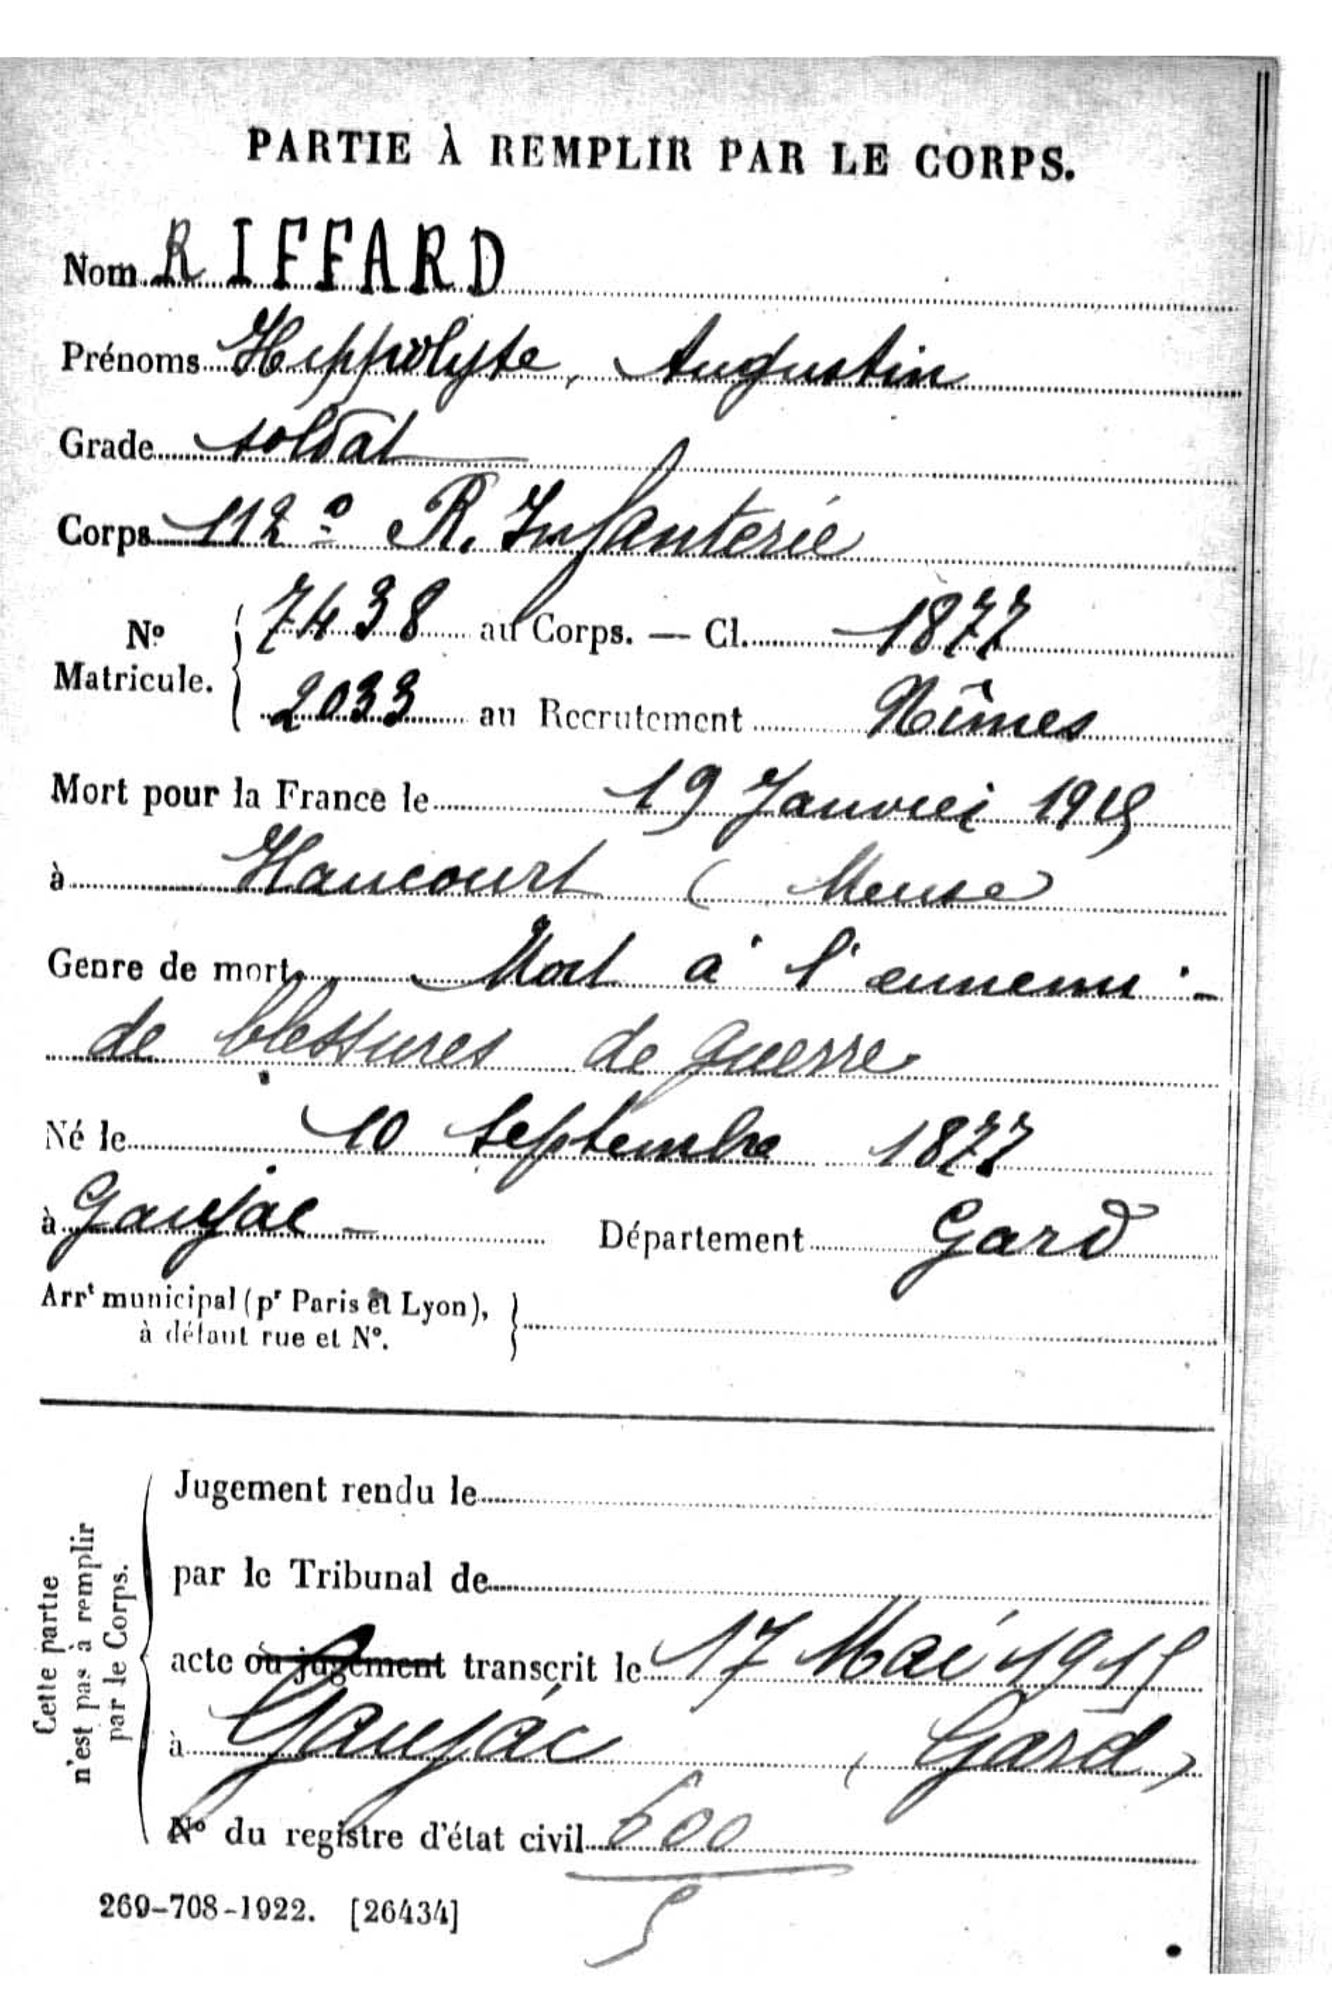 PARTIE À REMPLIR PAR LE CORPS.
Nom RIFFARD
Prénoms Hippolyte, Augustin
Grade soldat
Corps 112e R. Infanterie
No Matricule. { 7438 au Corps. — Cl. 1877
2033 au Recrutement Nîmes
Mort pour la France le 19 Janvier 1915
à Haucourt ( Meuse )
Genre de mort Mort à l'ennemi -
de blessures de guerre
Né le 10 septembre 1877
à Gaujac - Département Gard
Arrt municipal (pr Paris et Lyon), }
à défaut rue et No.
Cette partie
n'est pas à remplir
par le Corps.
Jugement rendu le
par le Tribunal de
acte ou jugement transcrit le 17 Mai 1915
à Gaujac ( Gard )
No du registre d'état civil 600
5
269-708-1922. [26434]